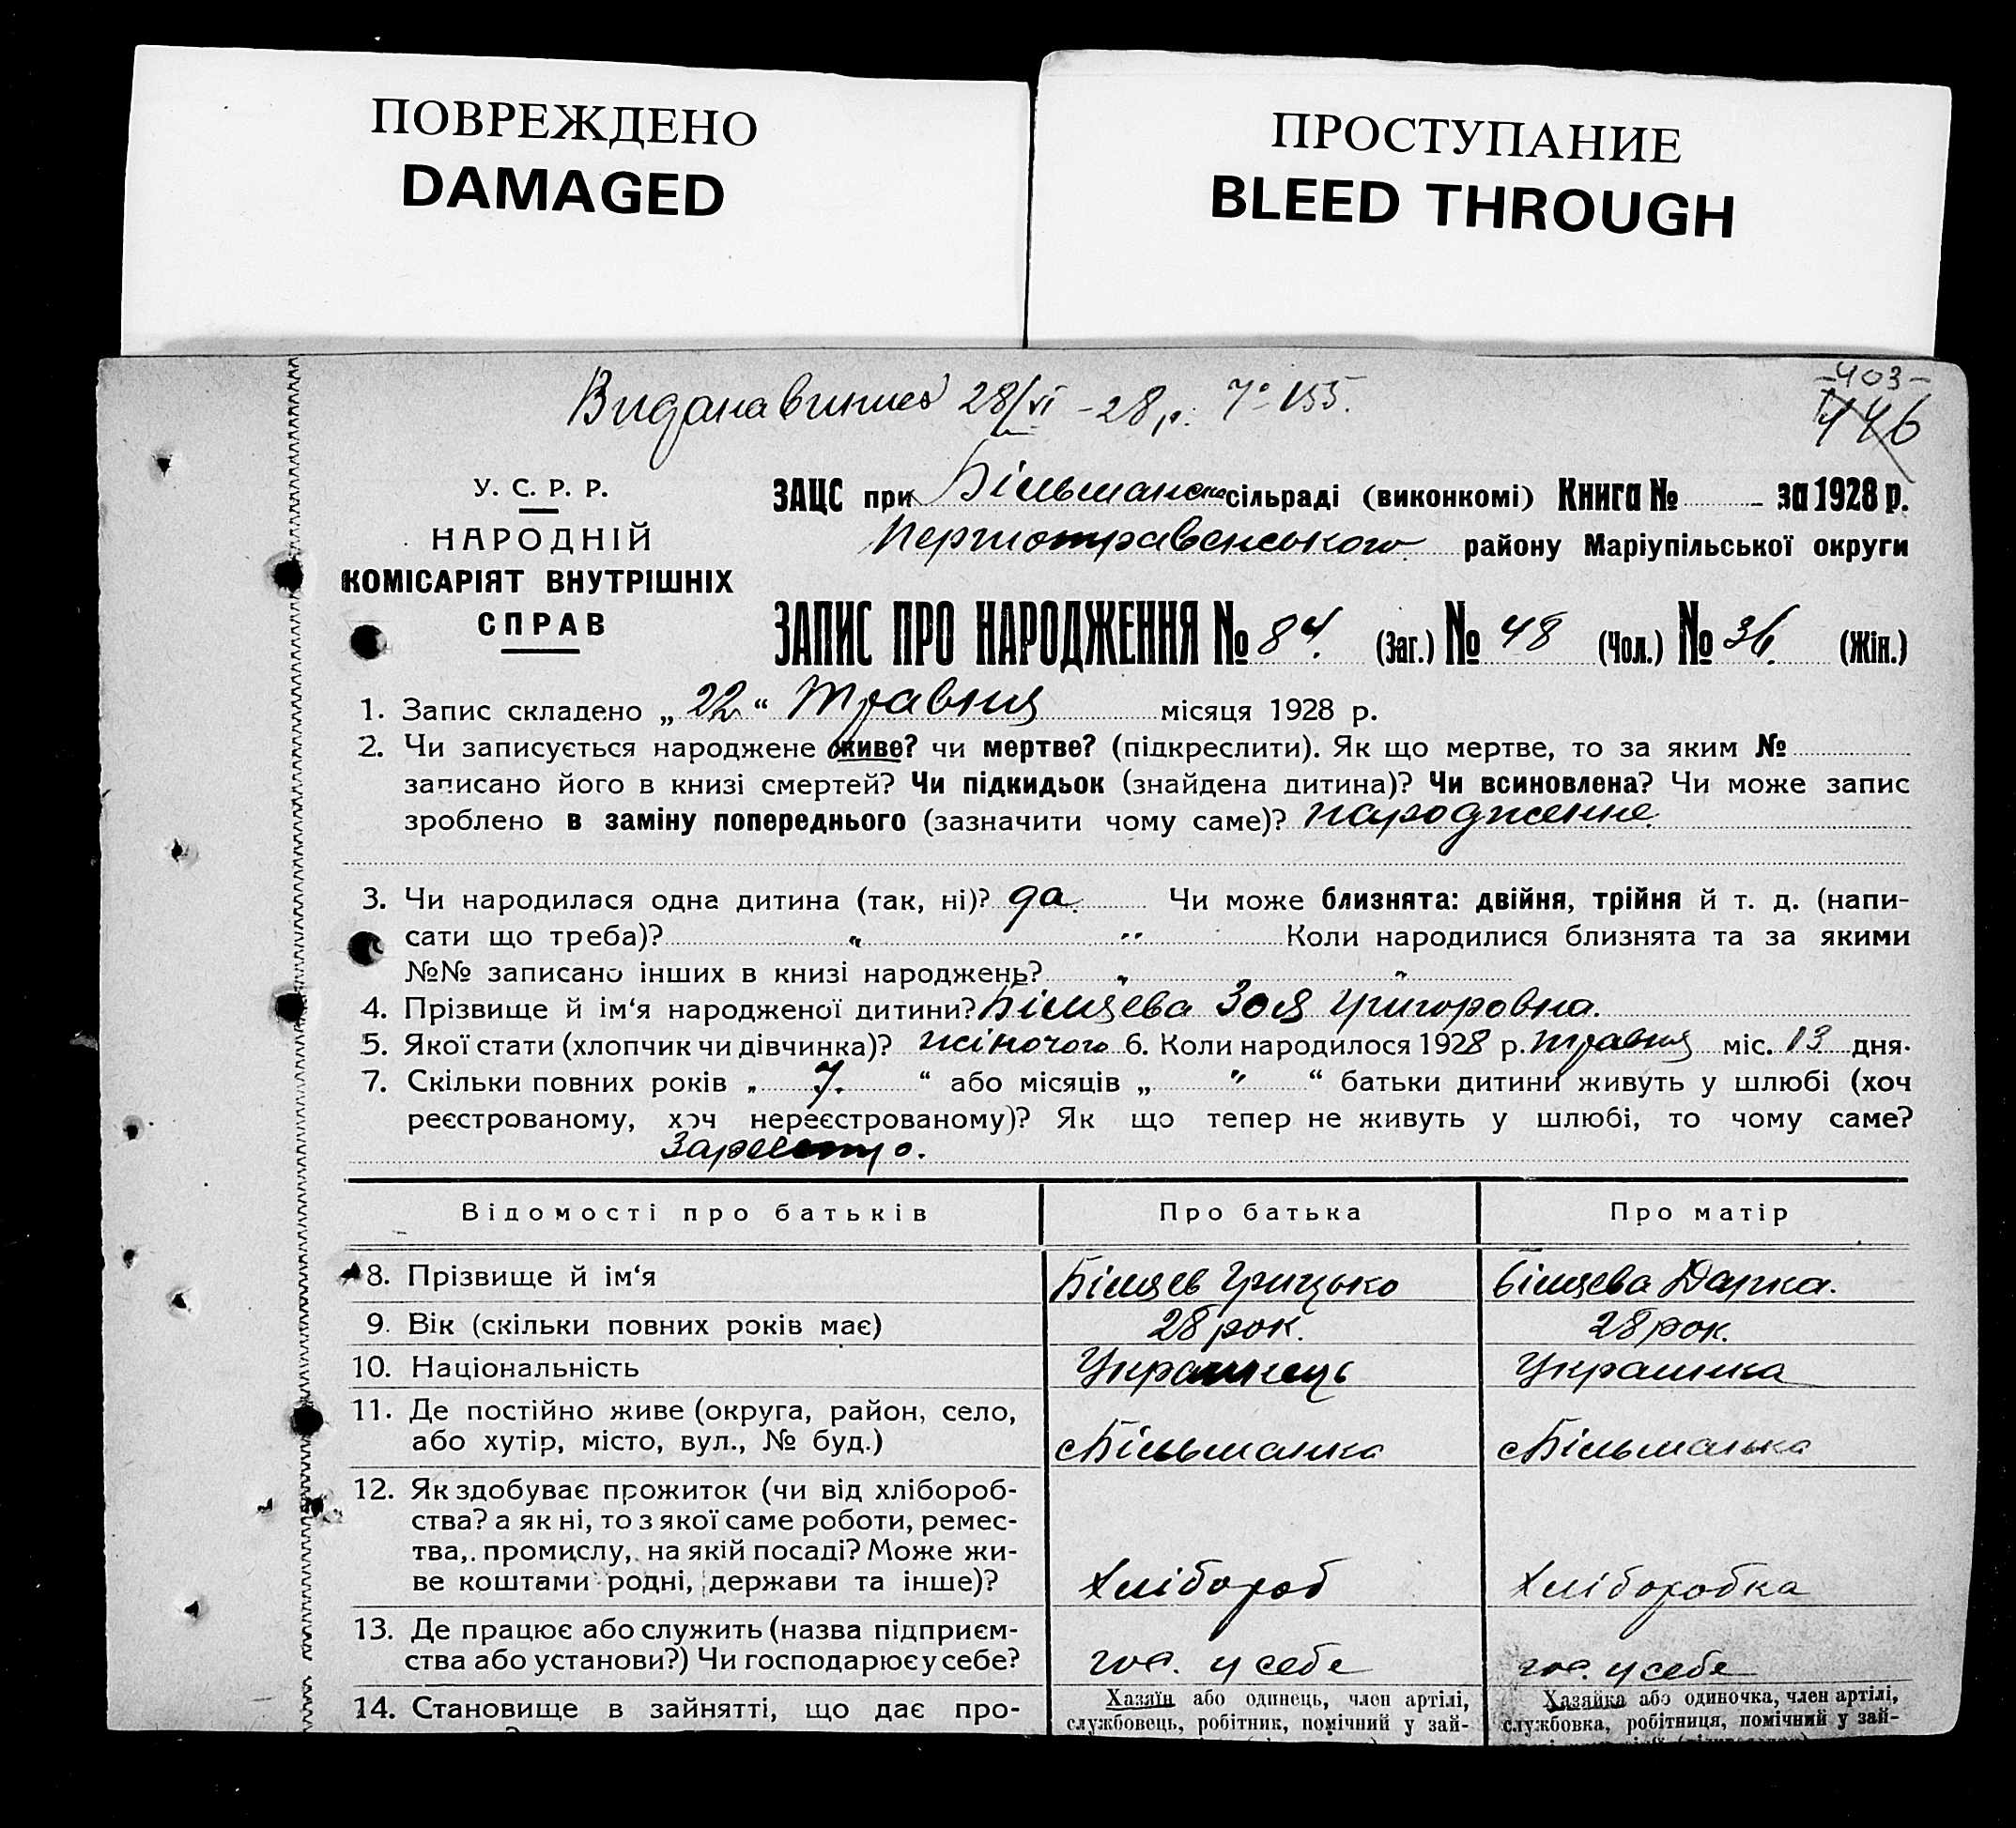 ПОВРЕЖДЕНО
DAMAGED
ПРОСТУПАНИЕ
BLEED THROUGH
-403-
446
28/VI -28 р. 155.
У. С. Р. Р.
НАРОДНІЙ
КОМІСАРІЯТ ВНУТРІШНІХ
СПРАВ
ЗАЦС при Більманськ сільраді (виконкомі) Книга № за 1928 р.
Першотравенського району Маріупільської округи
ЗАПИС ПРО НАРОДЖЕННЯ № 84. (Заг.) № 48 (Чол.) № 36. (Жін.)
1. Запис складено „ 22 “ травня місяця 1928 р.
2. Чи записується народжене живе? чи мертве? (підкреслити). Як що мертве, то за яким №
записано його в книзі смертей? Чи підкидьок (знайдена дитина)? Чи всиновлена? Чи може запис
зроблено в заміну попереднього (зазначити чому саме)? народження.
3. Чи народилася одна дитина (так, ні)? да. Чи може близнята: двійня, трійня й т. д. (напи-
сати що треба)? „ “ Коли народилися близнята та за якими
№№ записано інших в книзі народжень? „ “
4. Прізвище й ім‘я народженої дитини? Зоя Григоровна.
5. Якої стати (хлопчик чи дівчинка)? жіночого 6. Коли народилося 1928 р. травня міс. 13 дня.
7. Скільки повних років „ 7. “ або місяців „ " “ батьки дитини живуть у шлюбі (хоч
реєстрованому, хоч нереєстрованому)? Як що тепер не живуть у шлюбі, то чому саме?
Зарестро.
Відомості про батьків Про батька Про матір
8. Прізвище й ім‘я Грицько Дарка.
9. Вік (скільки повних років має) 28 рок. 28 рок.
10. Національність Українець Українка
11. Де постійно живе (округа, район, село,
або хутір, місто, вул., № буд.) с Більманка с Більманка
12. Як здобуває прожиток (чи від хлібороб-
ства? а як ні, то з якої саме роботи, ремес-
тва,. промислу, на якій посаді? Може жи-
ве коштами родні, держави та інше)? Хлібороб Хліборобка
13. Де працює або служить (назва підприєм-
ства або установи?) Чи господарює у себе? гос. у себе гос. у себе
14. Становище в зайнятті, що дає про- Хазяїн або одинець, член артілі, Хазяйка або одиночка, член артілі,
службовець, робітник, помічний у зай- службовка, робітниця, помічний у зай-